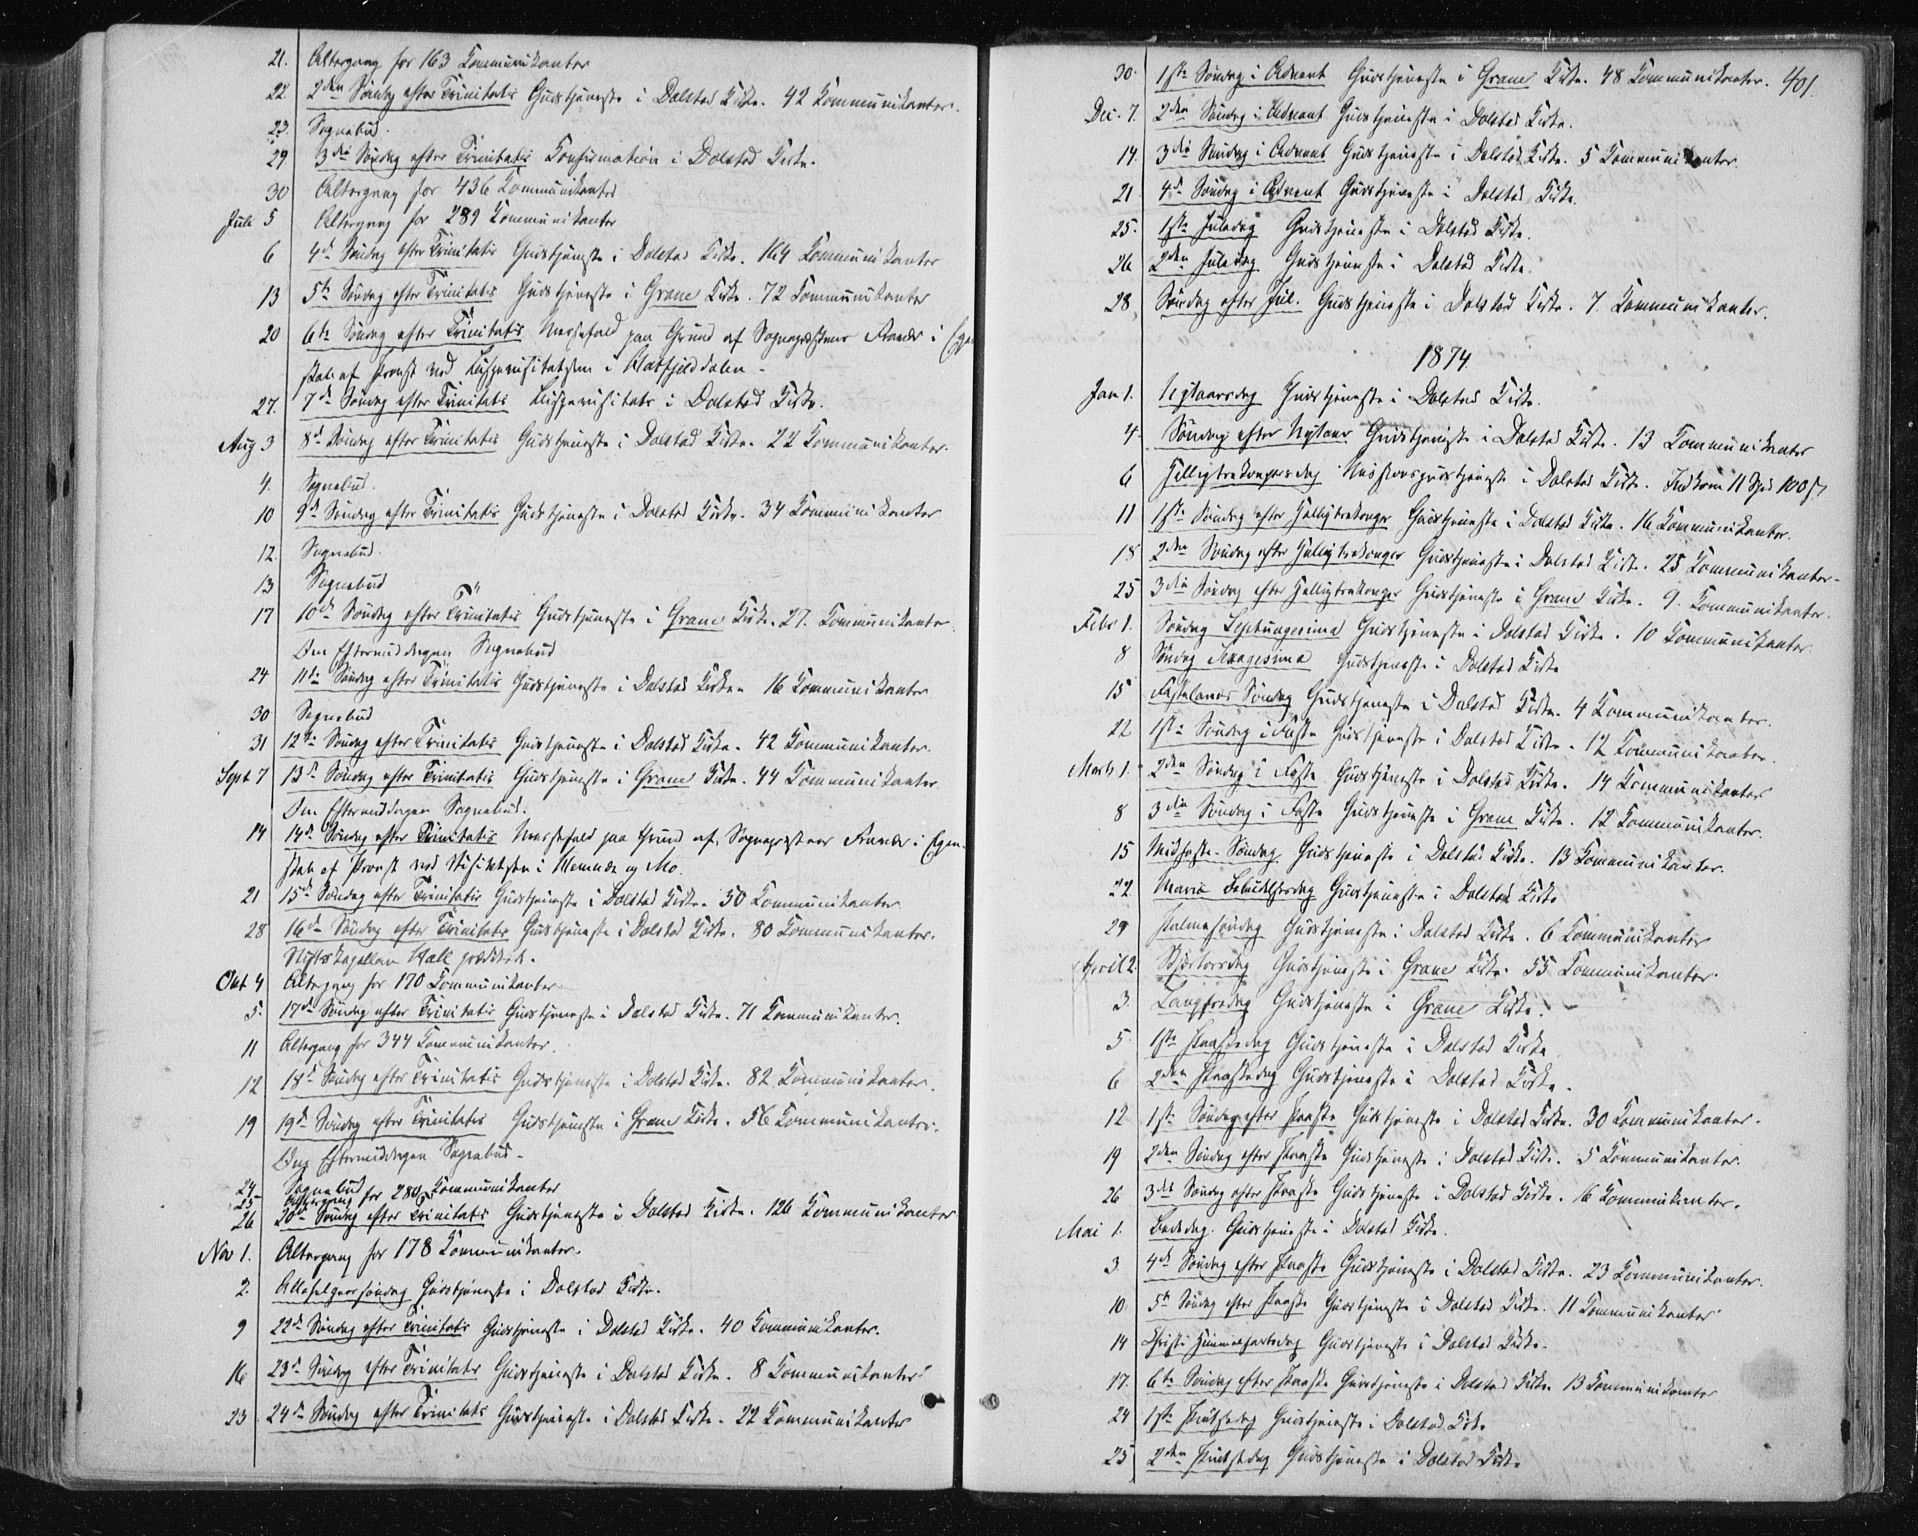 21. Altergang for 163 Kommunikanter
22. 2den Søndag efter Trinitatis Gudstjeneste i Dolstad Kirke. 42 Kommunikanter.
23. Sognebud.
29 3die Søndag efter Trinitatis Konfirmation i Dolstad Kirke.
30 Altergang for 436 Kommunikanter
Juli 5 Altergang for 289 Kommunikanter
6 4de Søndag efter Trinitatis Gudstjeneste i Dolstad Kirke. 164 Kommunikanter
13 5te Søndag efter Trinitatis Gudstjeneste i Grane Kirke. 72 Kommunikanter
20 6te Søndag efter Trinitatis Messefald paa Grund af Sognepræstens Fravær i Egen-
skab af Provst ved Bispevisitatsen i Hatfjelddalen.
27. 7de Søndag efter Trinitatis Bispevisitats i Dolstad Kirke.
Aug 3 8de Søndag efter Trinitatis Gudstjeneste i Dolstad Kirke. 22 Kommunikanter.
4. Sognebud.
10 9de Søndag efter Trinitatis Gudstjeneste i Dolstad Kirke. 34 Kommunikanter
12. Sognebud.
13 Sognebud
17 10de Søndag efter Trinitatis Gudstjeneste i Grane Kirke. 27. Kommunikanter.
Om Eftermiddagen Sognebud
24 11de Søndag efter Trinitatis Gudstjeneste i Dolstad Kirke. 16 Kommunikanter
30 Sognebud
31 12te Søndag efter Trinitatis Gudstjeneste i Dolstad Kirke. 42 Kommunikanter.
Sept 7 13de Søndag efter Trinitatis Gudstjeneste i Grane Kirke. 44 Kommunikanter
Om Eftermiddagen Sognebud.
14 14de Søndag efter Trinitatis Messefald paa Grund af Sognepræstens Fravær i Egen-
skab af Provst ved Visitatsen i Hemnæs og Mo.
21 15de Søndag efter Trinitatis Gudstjeneste i Dolstad Kirke. 50 Kommunikanter
28 16de Søndag efter Trinitatis Gudstjeneste i Dolstad Kirke. 80 Kommunikanter.
Stiftskapellan Hall prædikede.
Okt 4 Altergang for 170 Kommunikanter.
5. 17de Søndag efter Trinitatis Gudstjeneste i Dolstad Kirke. 71 Kommunikanter.
11 Altergang for 344 Kommunikanter.
12 18de Søndag efter Trinitatis Gudstjeneste i Dolstad Kirke. 82 Kommunikanter.
19 19de Søndag efter Trinitatis Gudstjeneste i Grane Kirke. 56 Kommunikanter.
Om Eftermiddagen Sognebud.
24 Sognebud
25 Altergang for 280 Kommunikanter
26 20de Søndag efter Trinitatis Gudstjeneste i Dolstad Kirke. 126 Kommunikanter
Nov 1. Altergang for 178 Kommunikanter.
2. Allehelgenssøndag Gudstjeneste i Dolstad Kirke.
9 22de Søndag efter Trinitatis Gudstjeneste i Dolstad Kirke. 40 Kommunikanter.
16 23de Søndag efter Trinitatis Gudstjeneste i Dolstad Kirke. 8 Kommunikanter
23 24de Søndag efter Trinitatis Gudstjeneste i Dolstad Kirke. 22 Kommunikanter
401.
30. 1ste Søndag i Advent Gudstjeneste i Grane Kirke. 48 Kommunikanter.
Dec. 7. 2den Søndag i Advent Gudstjeneste i Dolstad Kirke.
14. 3die Søndag i Advent Gudstjeneste i Dolstad Kirke. 5 Kommunikanter.
21 4de Søndag i Advent Gudstjeneste i Dolstad Kirke.
25. 1ste Juledag Gudstjeneste i Dolstad Kirke.
26 2den Juledag Gudstjeneste i Dolstad Kirke.
28 Søndag efter Jul. Gudstjeneste i Dolstad Kirke. 7. Kommunikanter.
1874
Jan 1. Nytaarsdag Gudstjeneste i Dolstad Kirke.
4. Søndag efter Nytaar Gudstjeneste i Dolstad Kirke. 13 Kommunikanter
6 Helligtrekongersdag Missionsgudstjeneste i Dolstad Kirke. Indkom 11 Spd 100 s
11 1ste Søndag efter Helligtrekonger Gudstjeneste i Dolstad Kirke. 16 Kommunikanter.
18 2den Søndag efter Helligtrekonger Gudstjeneste i Dolstad Kirke. 25 Kommunikanter.
25 3die Søndag efter Helligtrekonger Gudstjeneste i Grane Kirke. 9. Kommunikanter.
Febr 1. Søndag Septuagesima Gudstjeneste i Dolstad Kirke. 10 Kommunikanter
8 Søndag Sexagesima Gudstjeneste i Dolstad Kirke
15 Fastelavns Søndag Gudstjeneste i Dolstad Kirke. 4 Kommunikanter.
22 1ste Søndag i Faste Gudstjeneste i Dolstad Kirke. 12 Kommunikanter.
Marts 1. 2den Søndag i Faste Gudstjeneste i Dolstad Kirke. 14 Kommunikanter
8 3die Søndag i Faste Gudstjeneste i Grane Kirke. 12 Kommunikanter.
15 Midfaste Søndag Gudstjeneste i Dolstad Kirke. 13 Kommunikanter.
22 Mariæ Bebudelsesdag Gudstjeneste i Dolstad Kirke
29 Palmesøndag Gudstjeneste i Dolstad Kirke. 6 Kommunikanter
April 2. Skjærtorsdag Gudstjeneste i Grane Kirke. 55 Kommunikanter.
3. Langfredag Gudstjeneste i Grane Kirke.
5 1ste Paaskedag Gudstjeneste i Dolstad Kirke
6 2den Paaskedag Gudstjeneste i Dolstad Kirke.
12 1ste Søndag efter Paaske Gudstjeneste i Dolstad Kirke. 30 Kommunikanter.
19 2den Søndag efter Paaske Gudstjeneste i Dolstad Kirke. 5 Kommunikanter.
26 3die Søndag efter Paaske Gudstjeneste i Dolstad Kirke. 16 Kommunikanter.
Mai 1. Bededag. Gudstjeneste i Dolstad Kirke.
3 4de Søndag efter Paaske Gudstjeneste i Dolstad Kirke. 23 Kommunikanter.
10 5te Søndag efter Paaske Gudstjeneste i Dolstad Kirke. 11 Kommunikanter
14 Christi Himmelfartsdag Gudstjeneste i Dolstad Kirke.
17. 6te Søndag efter Paaske Gudstjeneste i Dolstad Kirke 13 Kommunikanter
24 1ste Pintsedag Gudstjeneste i Dolstad Kirke
25 2den Pintsedag Gudstjeneste i Dolstad Kirke.